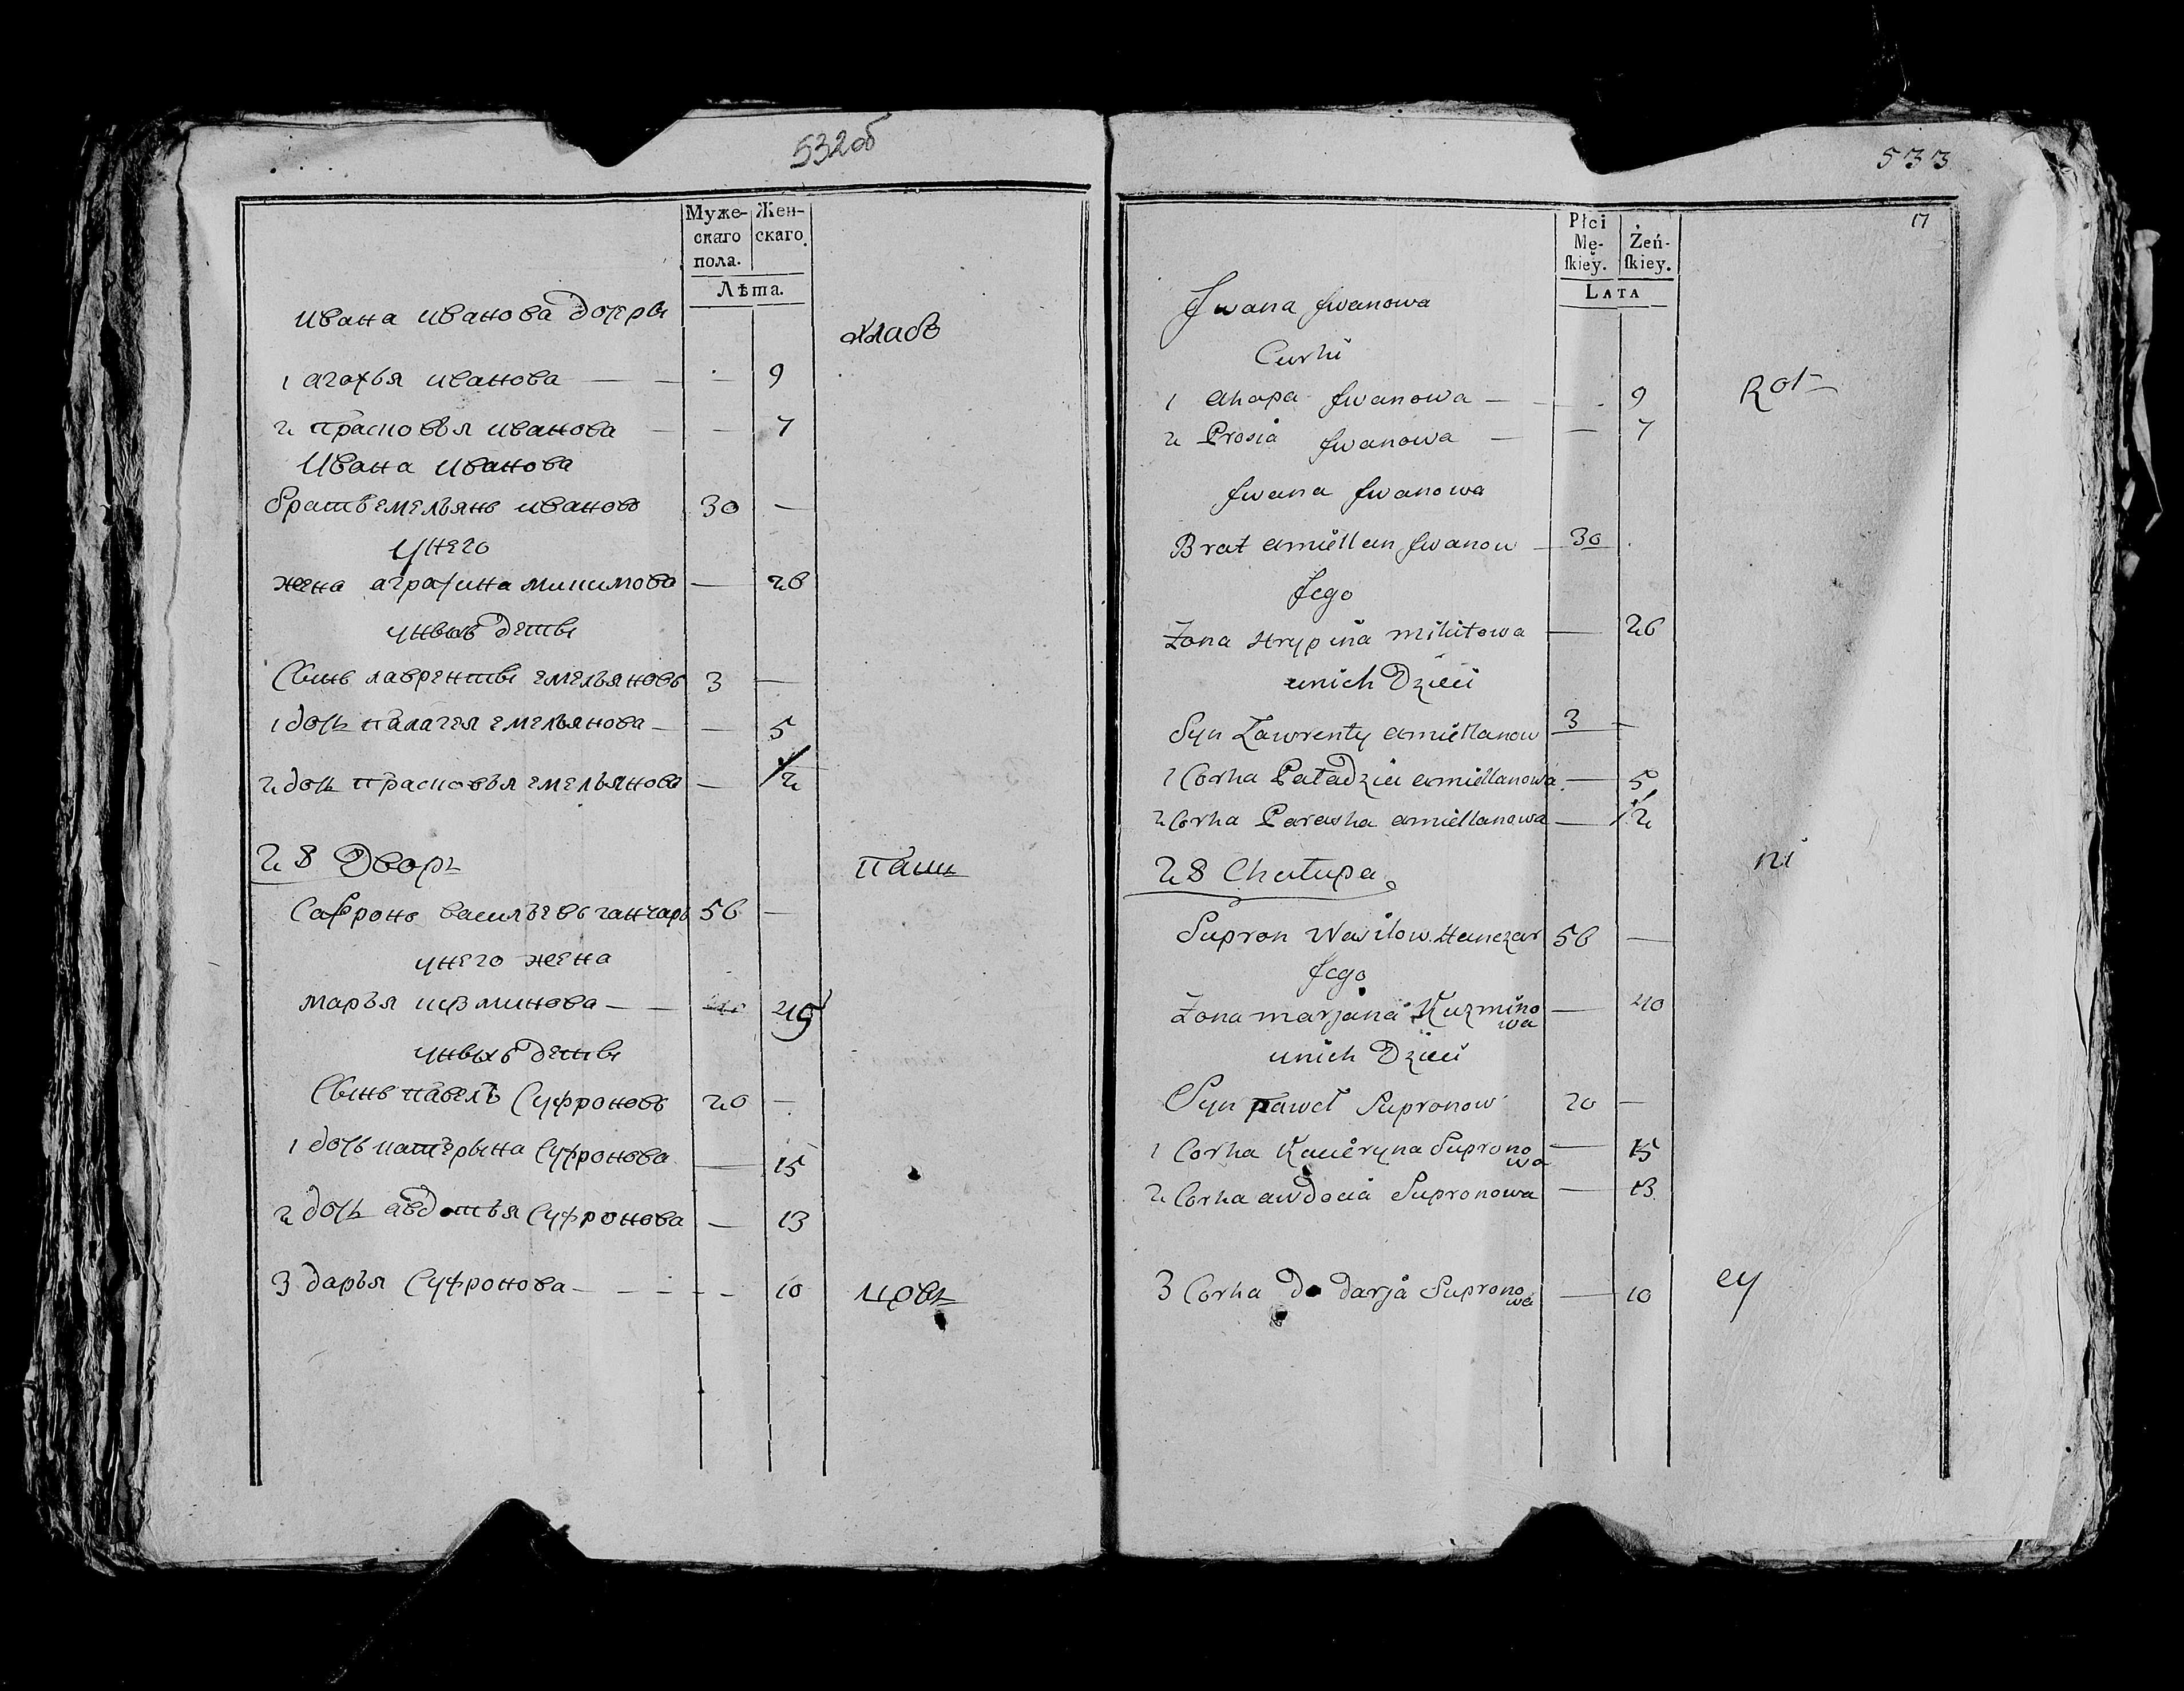 532об
Муже-
скаго
пола.
Жен-
скаго.
Лѣта.
Ивана Иванова дочеры
1 агафья иванова — — — 9
2 прасковья иванова — — 7
Ивана Иванова
братъ емельянъ ивановъ 30 —
у него
жена аграфина микитова — 26
у ныхъ деты
Сынъ лавренты емельяновъ 3 —
1 дочь палагея емельянова — — 5
2 дочь прасковья емельянова — 1/2
28 Дворъ
Сафронъ васильевъ ганчаръ 56 —
у него жена
марья кузминова — —
у ныхъ деты
Сынъ павелъ Суфроновъ 20 —
1 дочь катерына Суфронова — 15
2 дочь авдотья Суфронова — 13
3 дарья Суфронова — — — — 10
533
17
Płci
Mę-
ſkiey.
Żeń-
ſkiey.
LATA
Jwana Jwanowa
Curki
1 Ahapa Jwanowa — — 9
2 Prosia Jwanowa — — 7
Jwana Jwanowa
Brat amiellan Jwanow — 30
Jego
Zona Hrypina mikitowa — 26
unich Dzieci
Syn Ławrenty amiellanow 3 —
1 Corka Paładzia amiellanowa — 5
2 Corka Paraska amiellanowa — 1/2
28 Chałupa
Supron Wasilow Hanczar 56 —
Jego
Zona marjana Kuzmino
wa — 40
unich Dzieci
Syn paweł Supronow 20 —
1 Corka Kacieryna Suprono
wa — 15
2 Corka awdocia Supronowa — 13
3 Corka do darja Suprono
wa — 10